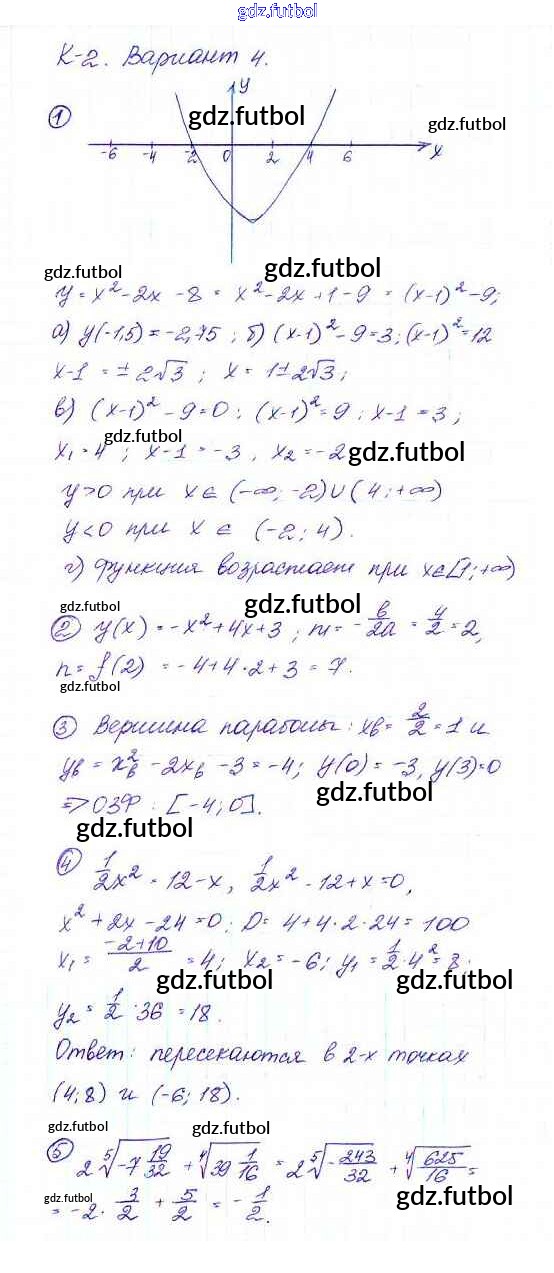 gdz.futbol
К-2. Вариант 4.
① y
gdz.futbol
gdz.futbol
-6 -4 -2 0 2 4 6 x
gdz.futbol
gdz.futbol
y = x² - 2x - 8 = x² - 2x + 1 - 9 = (x-1)² - 9;
а) y(-1,5) = -2,75 ; б) (x-1)² - 9 = 3; (x-1)² = 12
x-1 = ± 2√3 ; x = 1 ± 2√3 ;
в) (x-1)² - 9 = 0 ; (x-1)² = 9 ; x-1 = 3 ;
gdz.futbol
x₁ = 4 ; x-1 = -3 , x₂ = -2
gdz.futbol
y>0 при x ∈ (-∞; -2) ∪ (4; +∞)
y<0 при x ∈ (-2; 4).
г) функция возрастает при x∈[1; +∞)
gdz.futbol
gdz.futbol
② y(x) = -x² + 4x + 3 ; m = -b/2a = 4/2 = 2,
n = f(2) = -4 + 4·2 + 3 = 7.
gdz.futbol
③ Вершина параболы: xв = 2/2 = 1 и
yв = xв² - 2xв - 3 = -4; y(0) = -3, y(3) = 0
gdz.futbol
=> ОЗФ : [-4; 0].
gdz.futbol
④ 1/2x² = 12 - x, 1/2x² - 12 + x = 0,
x² + 2x - 24 = 0; D = 4 + 4·2·24 = 100
x₁ = (-2+10)/2 = 4; x₂ = -6; y₁ = 1/2·4² = 8;
gdz.futbol
gdz.futbol
y₂ = 1/2 · 36 = 18.
Ответ: пересекаются в 2-х точках
(4; 8) и (-6; 18).
gdz.futbol
gdz.futbol
⑤ 2 ⁵√(-7 19/32) + ⁴√(39 1/16) = 2 ⁵√(-243/32) + ⁴√(625/16) =
gdz.futbol
gdz.futbol
= -2 · 3/2 + 5/2 = -1/2.